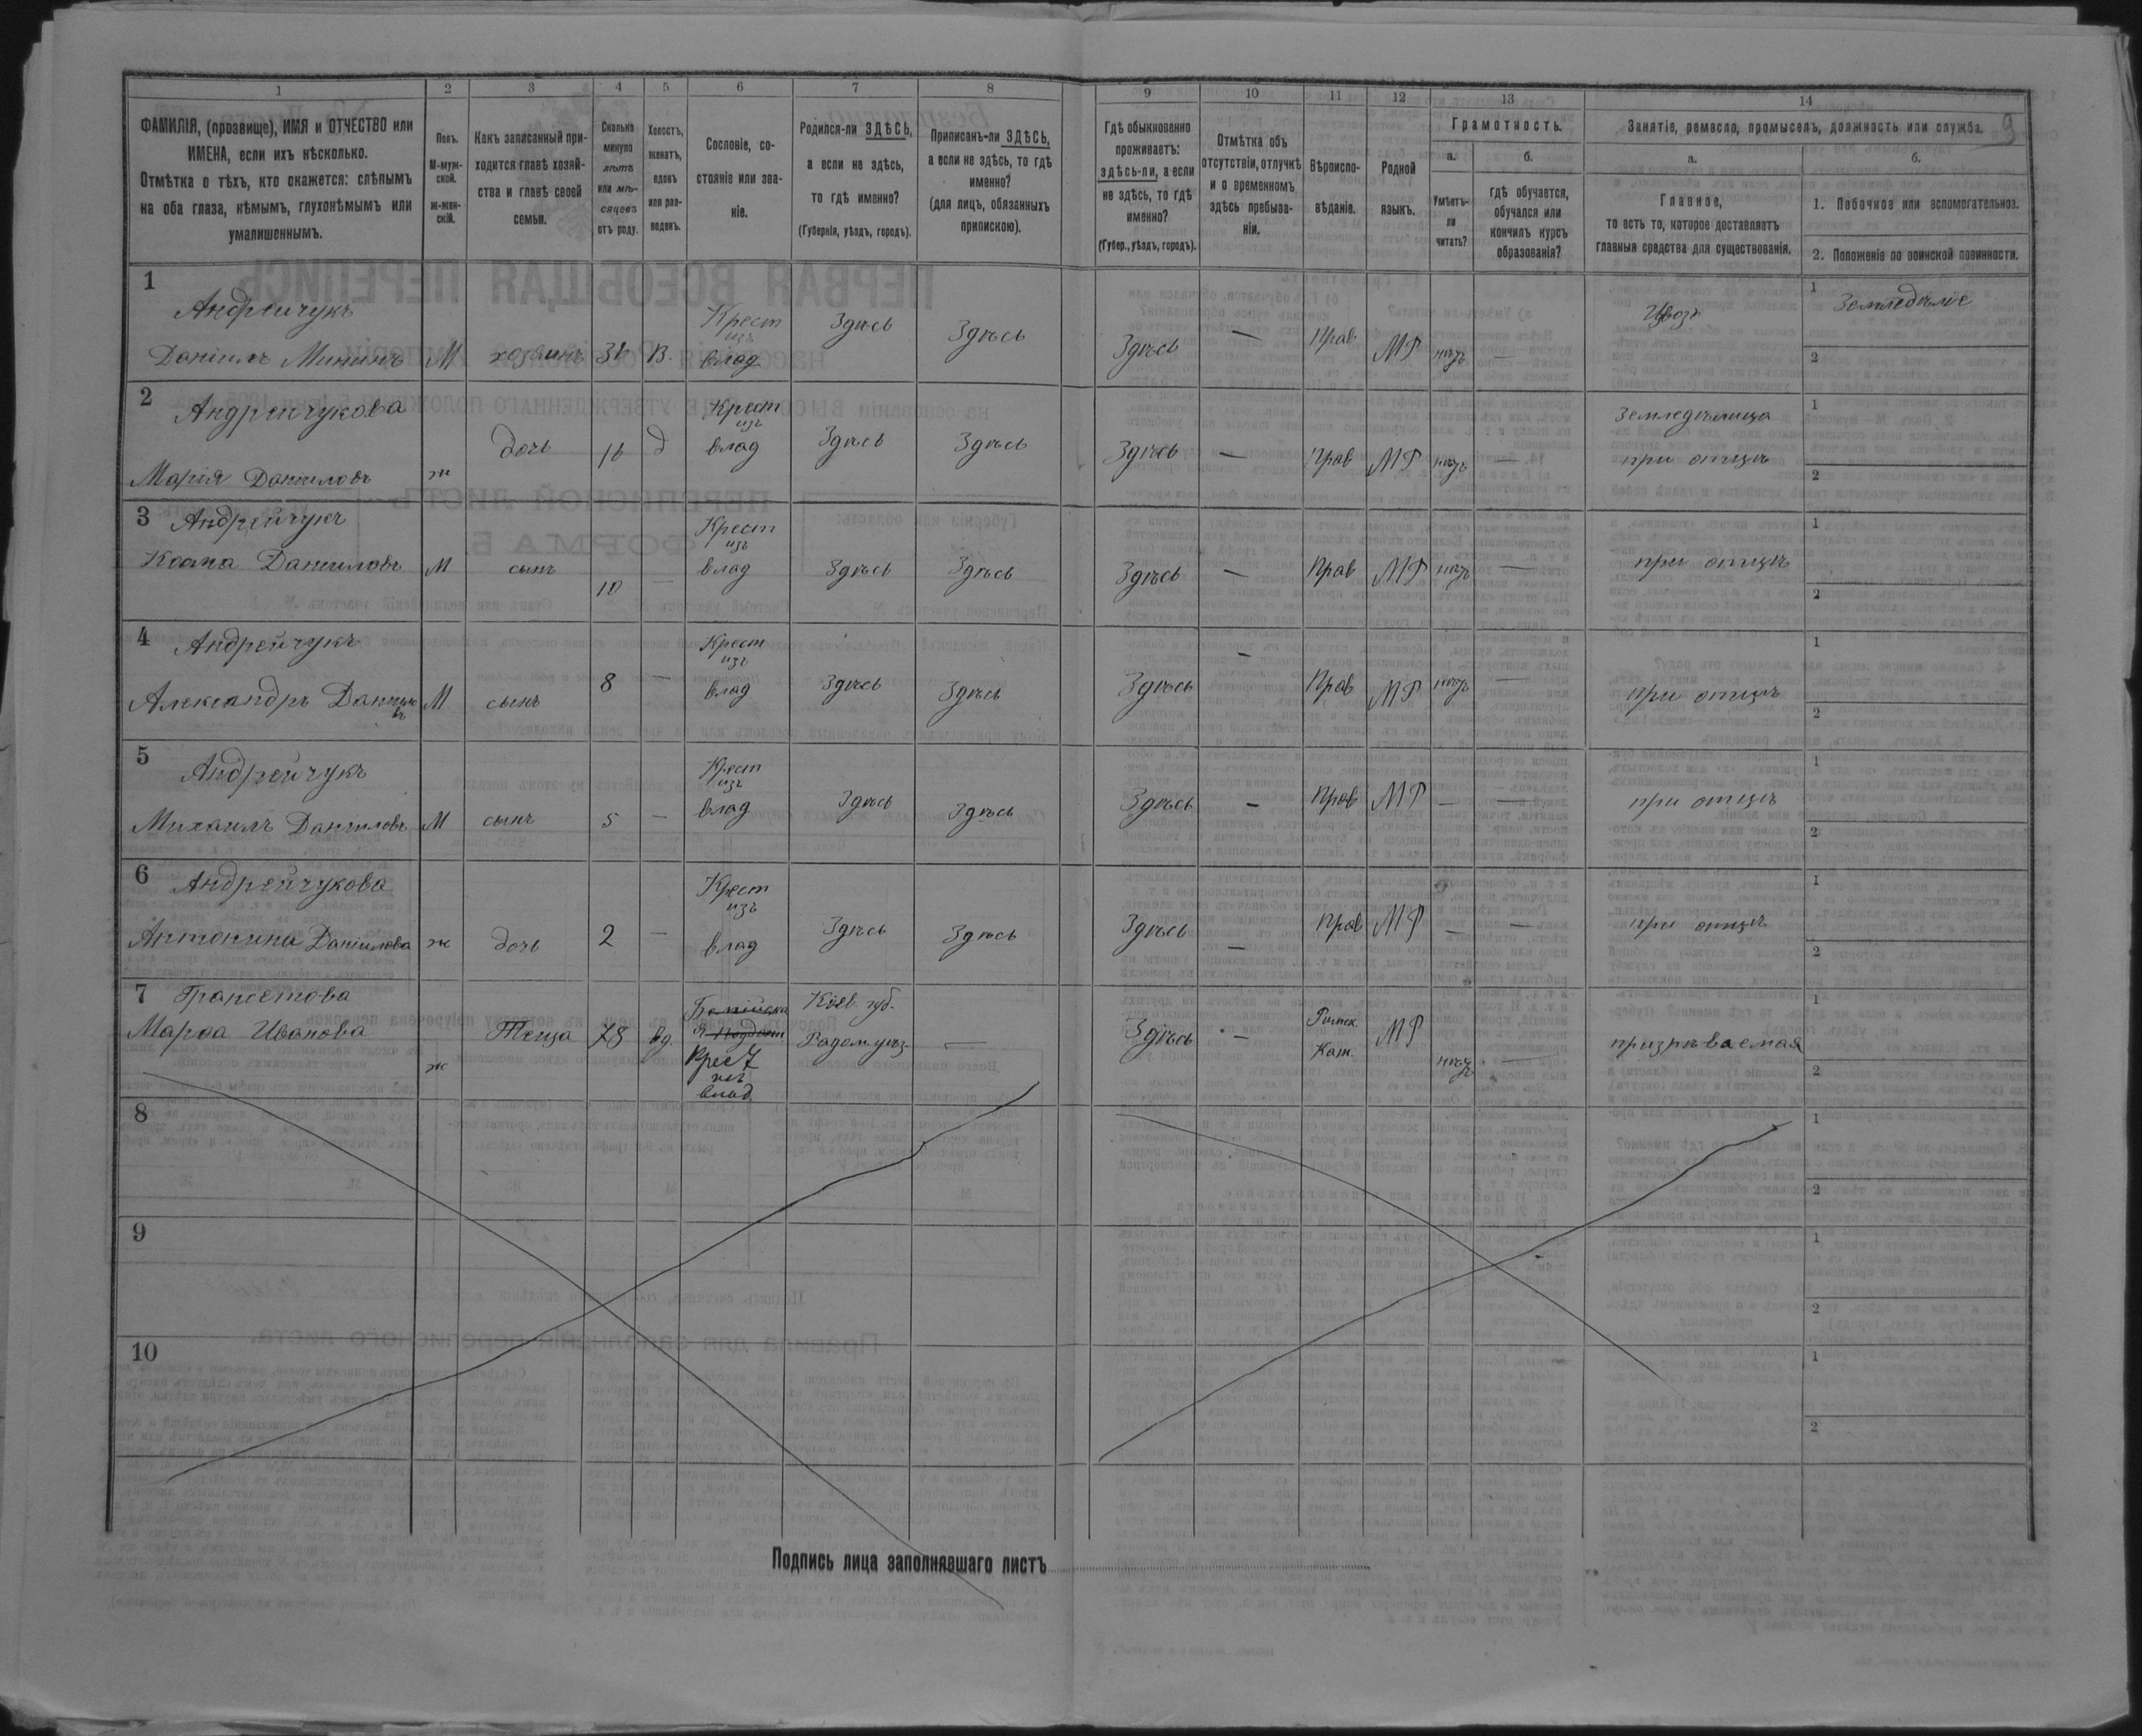 1 2 3 4 5 6 7 8 9 10 11 12 13 14
ФАМИЛІЯ, (прозвище), ИМЯ и ОТЧЕСТВО или
ИМЕНА, если ихъ нѣсколько.
Отмѣтка о тѣхъ, кто окажется: слѣпымъ
на оба глаза, нѣмымъ, глухонѣмымъ или
умалишеннымъ.
Полъ.
М-муж-
ской.
ж-жен-
скій.
Какъ записанный при-
ходится главѣ хозяй-
ства и главѣ своей
семьи.
Сколько
минуло
лѣтъ
или мѣ-
сяцевъ
отъ роду.
Холостъ,
женатъ,
вдовъ
или раз-
веденъ.
Сословіе, со-
стояніе или зва-
ніе.
Родился-ли ЗДѢСЬ,
а если не здѣсь,
то гдѣ именно?
(Губернія, уѣздъ, городъ).
Приписанъ-ли ЗДѢСЬ,
а если не здѣсь, то гдѣ
именно?
(для лицъ, обязанныхъ
припискою).
Гдѣ обыкновенно
проживаетъ:
здѣсь-ли, а если
не здѣсь, то гдѣ
именно?
(Губер., уѣздъ, городъ).
Отмѣтка объ
отсутствіи, отлучкѣ
и о временномъ
здѣсь пребыва-
ніи.
Вѣроиспо-
вѣданіе.
Родной
языкъ.
Грамотность.
а.
Умѣетъ-
ли
читать?
б.
гдѣ обучается,
обучался или
кончилъ курсъ
образованія?
Занятіе, ремесло, промыселъ, должность или служба.
9
а.
Главное,
то есть то, которое доставляетъ
главныя средства для существованія.
б.
1. Побочное или вспомогательное.
2. Положеніе по воинской повинности.
1
Андрейчукъ Крест Здѣсь Здѣсь Прав 1 Земледѣліе
изъ
Даніилъ Мининъ М хозяинъ В. влад Здѣсь — МР — 2
2
Андрейчукова Крест Земледѣлица 1
изъ
дочь 16 д влад Здѣсь Здѣсь Здѣсь — Прав МР — при отцѣ
Марія Даниловъ ж 2
3 Андрейчукъ Крест 1
изъ
Косма Даниловъ М сынъ 10 — влад Здѣсь Здѣсь Здѣсь — Прав МР — при отцѣ
2
4 Андрейчукъ Крест 1
изъ
Александръ М сынъ 8 — влад Здѣсь Здѣсь Здѣсь — Прав МР — при отцѣ
2
5 Андрейчукъ Крест 1
изъ
Михаилъ Даниловъ М сынъ 5 — влад Здѣсь Здѣсь Здѣсь — Прав МР — — при отцѣ
2
6 Андрейчукова Крест 1
изъ
Антонина Даніилова ж дочь 2 — влад Здѣсь Здѣсь Здѣсь — Прав МР — — при отцѣ
2
7 Киев. губ. 1
Марѳа Иванова ж Теща 78 вд. Радом. уѣз. — Здѣсь — Римск. МР — призрѣваемая
Крест Кат. 2
изъ
влад.
8 1
2
9 1
2
10 1
2
Подпись лица заполнявшаго листъ